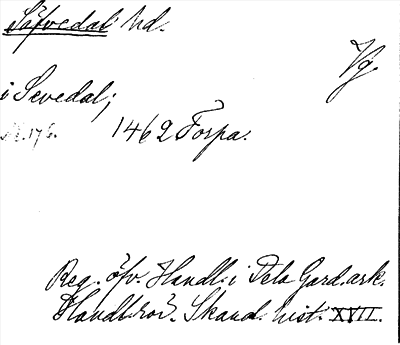 Säfvedal hd.
Vg.
i Sevedal;
A. 176. 1462 Forpa.
Reg. öfv. Handl. i Dela Gard. ark.
Handl. rör. Skand. hist. XVII.